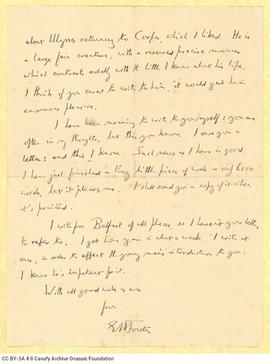 about Ulysses returning to Corfu which I liked. He is
a large fair creature, with a reserved precise manner
which contrasts oddly with the little I know about his life.
I think if you cared to write to him, it would give him
enormous pleasure.
I have been meaning to write to you myself: you are
often in my thoughts, but this you know. I owe you a
letter: and this I know. Such news as I have is good.
I have just finished a tiny little piece of work – only
words, but it pleases me. I shall send you a copy of it when
it's printed.
I write from Belfast of all places, so I haven't your letter
to refer to. I get home again in about a week. I write at
once, in order to effect the young man's introduction to you:
I know he's impatient for it.
With all good wishes as ever
from
EMForster
CC BY-SA 4.0 Cavafy Archive Onassis Foundation